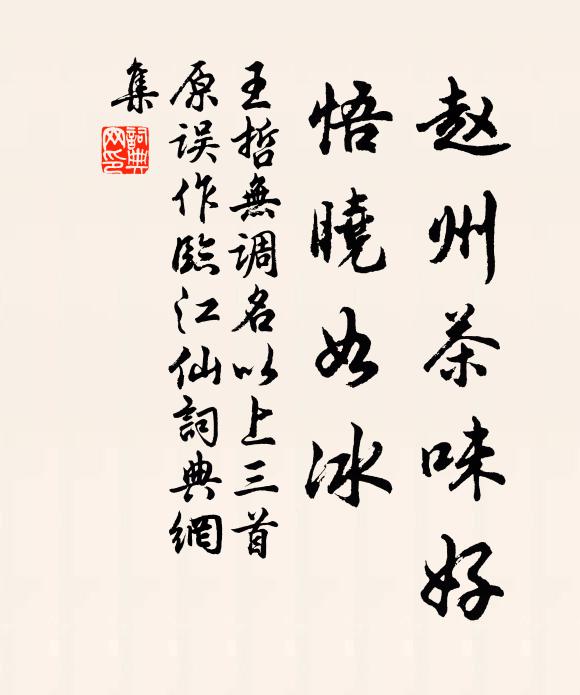 赵州茶味好
悟曉如冰
王哲無调名以上三首
原误作臨江仙詞典網
集
詞典網印